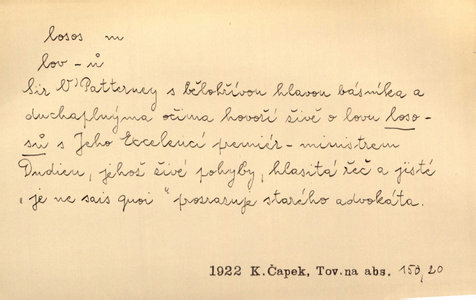 losos m
lov - ů
Sir W Patterney s bělohřívou hlavou básníka a
duchaplnýma očima hovoří živě o lovu loso-
sů s Jeho Excelencí premiér-ministrem
Dudieu, jehož živé pohyby, hlasitá řeč a jisté
„je ne sais quoi" prozrazuje starého advokáta.
1922 K.Čapek, Tov.na abs. 150,20